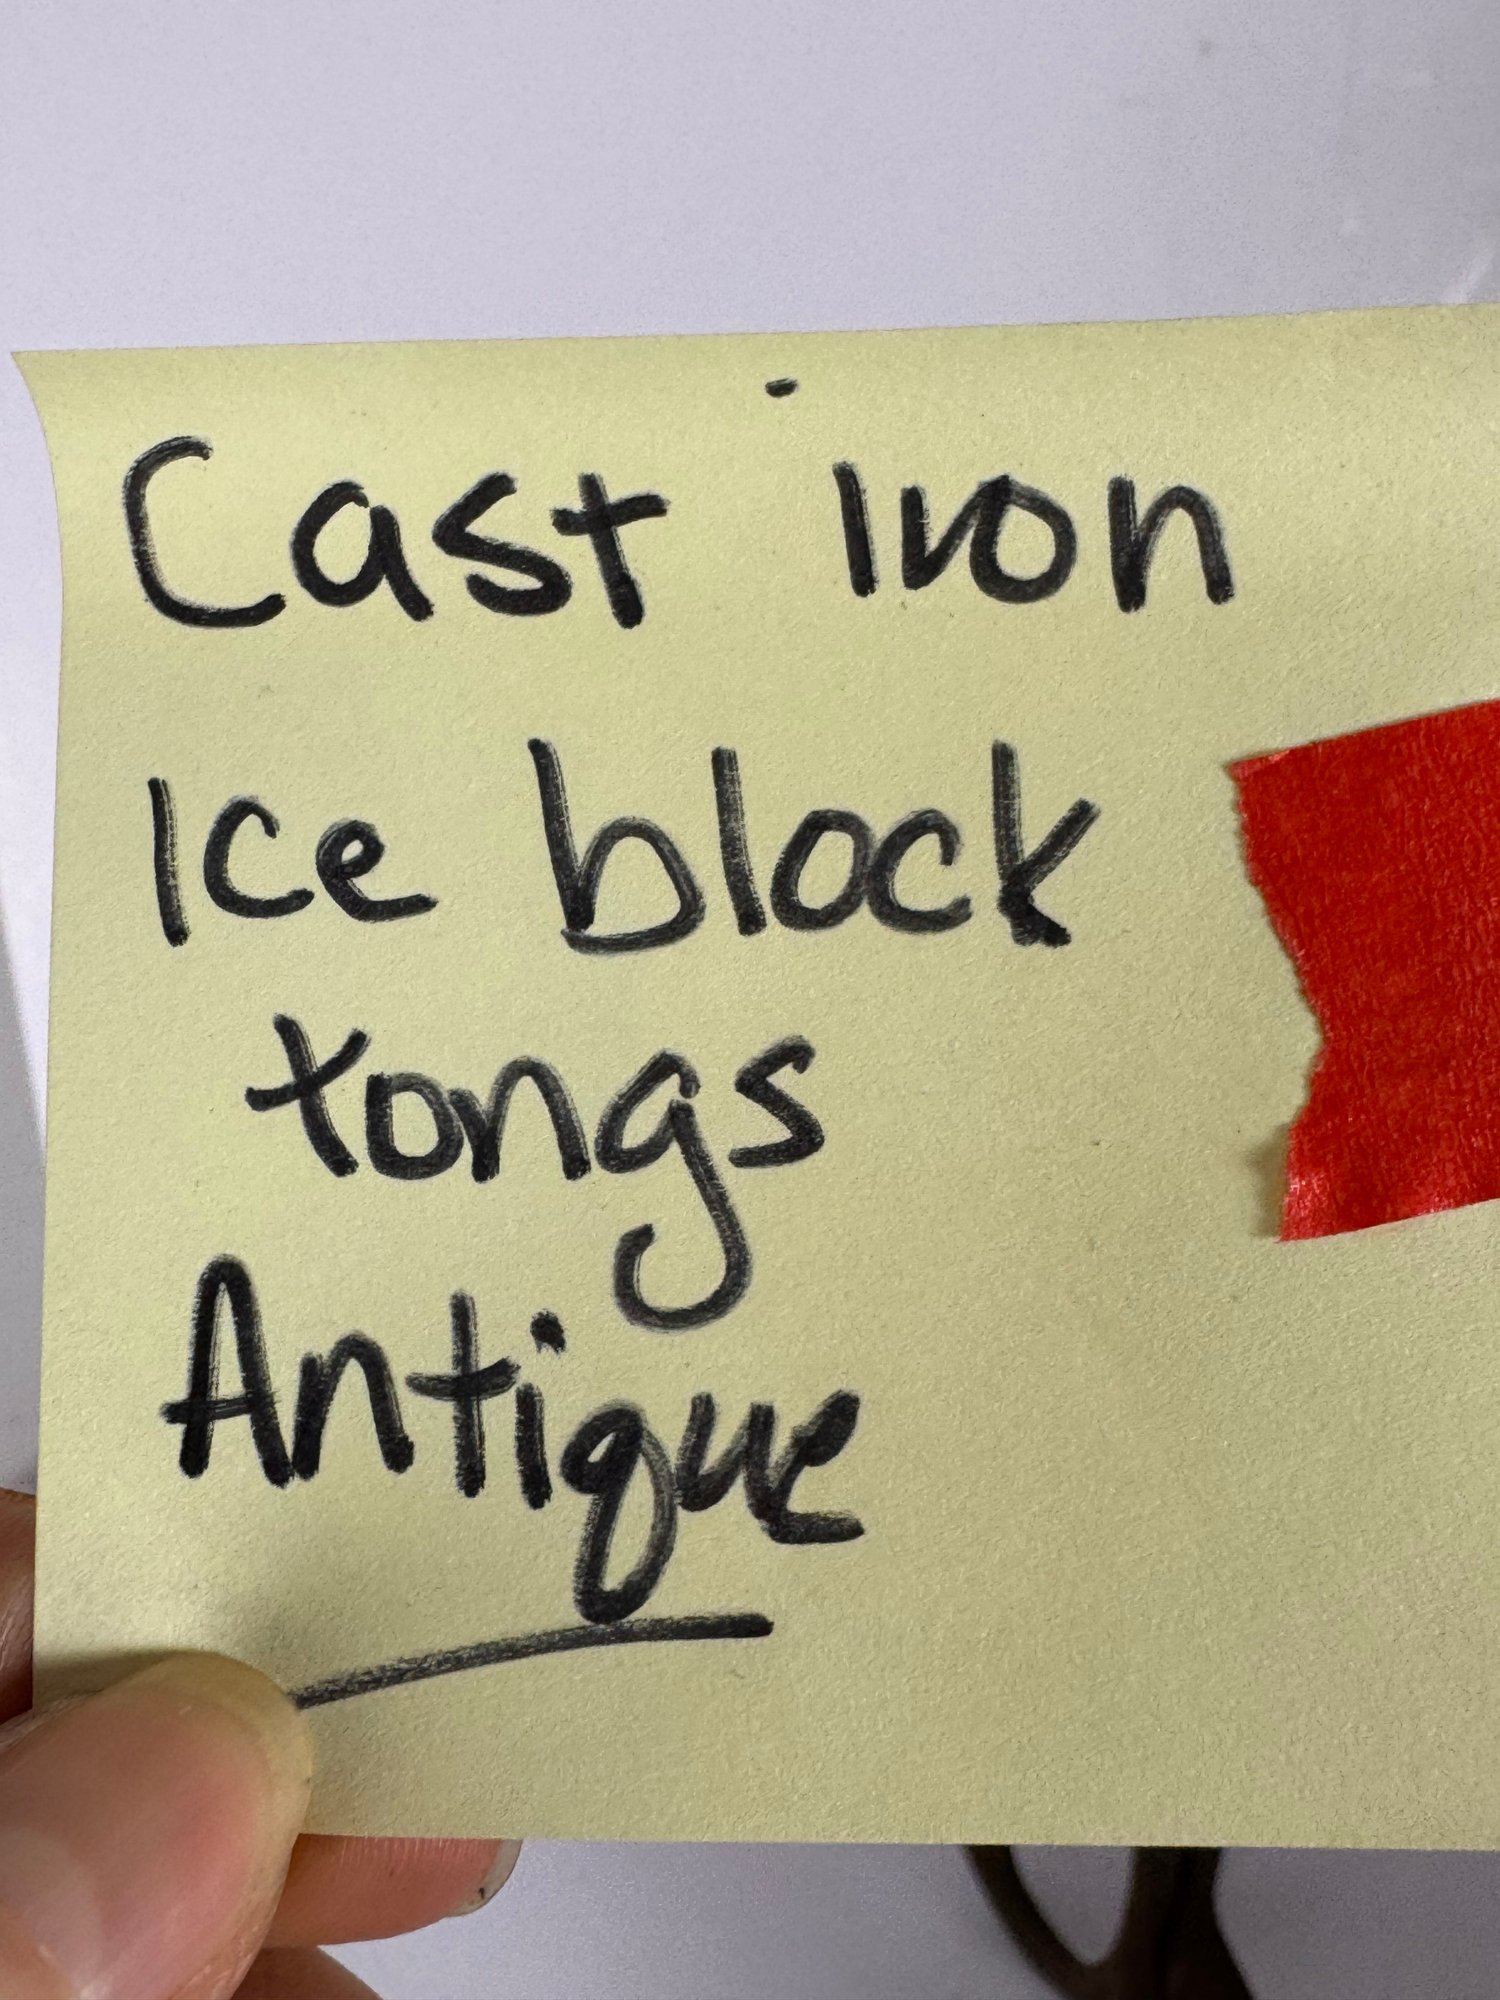 Cast iron
Ice block
tongs
Antique